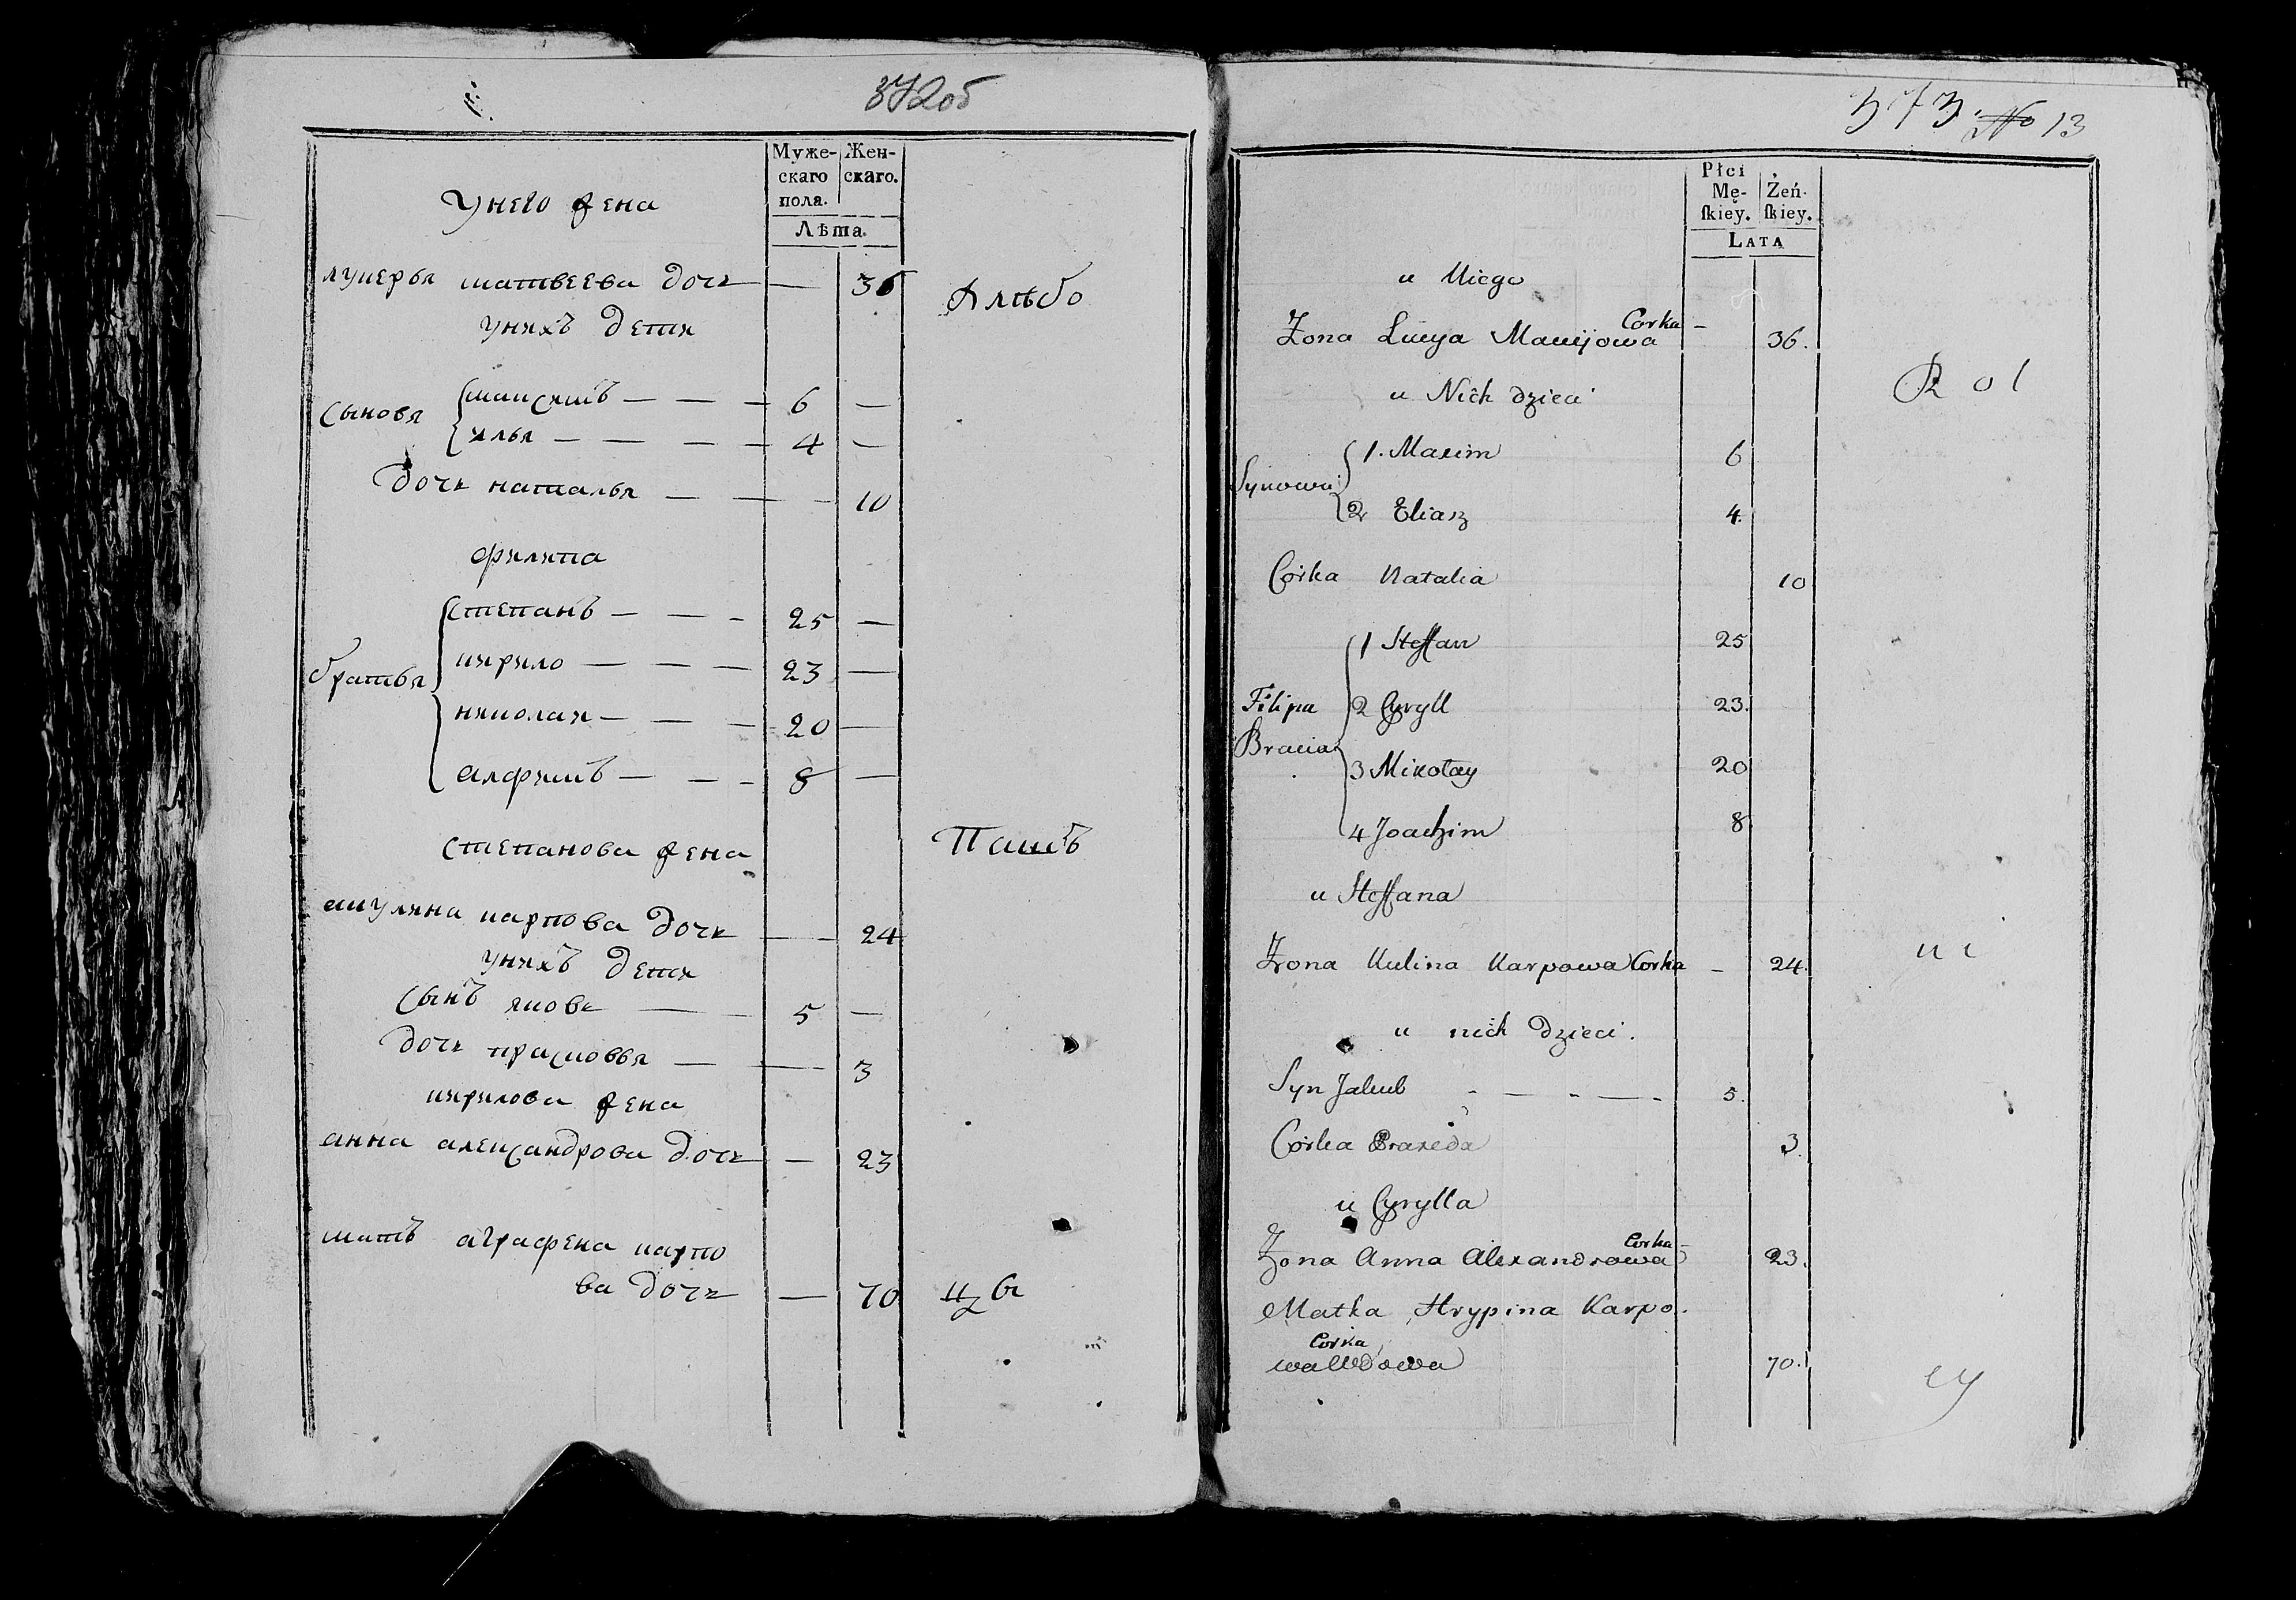 372об
Муже-
скаго
пола.
Жен-
скаго.
Лѣта.
У него жена
лукерья матвеева дочь — 36
у них детя
сыновя
максимъ — — — 6 —
илья — — — — 4 —
дочь наталья — — — 10
филипа
братья
степанъ — — — 25 —
кирило — — — 23 —
николаи — — — 20 —
алфимъ — — — 8 —
степанова жена
акулина карпова дочь — 24
у нихъ детя
сынъ яковъ — — 5 —
дочь прасковья — — 3
кирилова жена
анна александрова дочь — 23
мать аграфена карпо
ва дочь — 70
373. № 13
Płci
Mę-
skiey.
Żeń-
skiey.
LATA
u Niego
Corka
Zona Łucya Macijowa - 36.
u Nich dzieci
Synowie
1. Maxim 6
2 Eliasz 4.
Corka Natalia 10
Filipa
Bracia
1 Steffan 25
2 Cyryll 23.
3 Mikołay 20
4 Joachim 8
u Steffana
Zona Kulina Karpowa Corka - 24.
u nich dzieci.
Syn Jakub - - - - 5.
Corka Praxeda 3.
u Cyrylla
Corka
Zona Anna Alexandrowa - 23.
Matka Hrypina Karpo.
Corka
wa Wdowa 70.